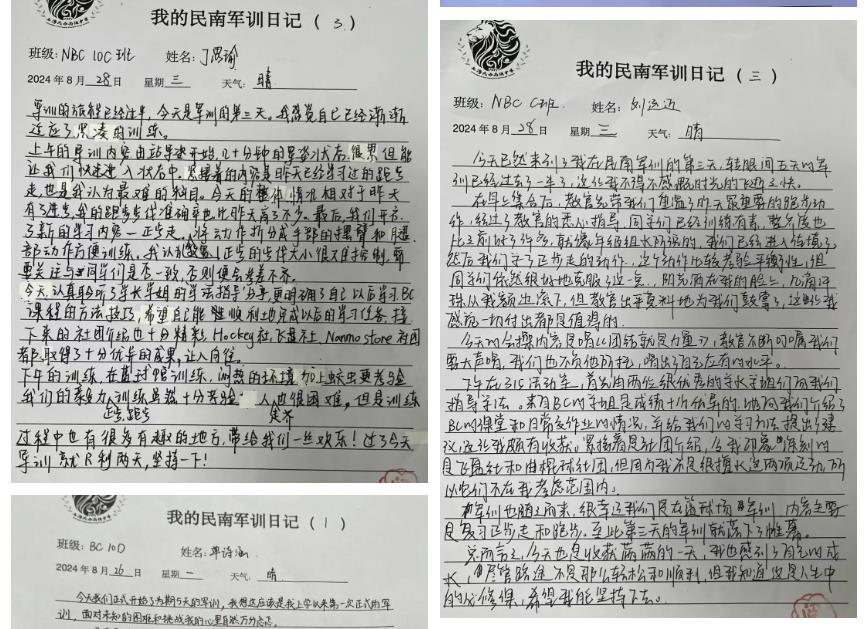 我的民南军训日记（3）
班级：NBC 10C班 姓名：丁思瑜
2024年8月28日 星期三 天气：晴
军训的旅程已经过半，今天是军训的第三天。我感觉自己已经渐渐
适应了的训练。
上午的军训内容由站军姿开始，几十分钟的军姿状态很累但能
让我们快速进入状态中。紧接着的内容是昨天已经学习过的跑步
走，也是我认为最难的科目。今天的整体情况相对于昨天
有了进步，我的跑步步伐准确率也比昨天高了不少。最后，我们开启
了新的学习内容—正步走，将动作拆分成手部的摆臂和腿
部动作方便训练。我认为正步的步伐大小很不好控制，需
要关注与同学们是否一致，否则便会参差不齐。
今天认真聆听了学长学姐的学法指导分享，更明确了自己以后学习BC
课程的方法技巧，希望自己能够顺利地完成以后的学习任务。接
下来的社团介绍也十分精彩，Hockey社，飞盘社，Nanmo store社团
都取得了十分优异的成果，让人向往。
下午的训练，在篮球馆训练，闷热的环境加上蚊虫更考验
我们的忍耐力，训练虽然十分考验人也很困难，但是训练
过程中也有很多有趣的地方，带给我们一丝欢乐！过了今天
军训就只剩两天，坚持一下！
我的民南军训日记（1）
班级：BC 10D 姓名：单诗涵
2024年8月26日 星期一 天气：晴
今天我们正式开始了为期5天的军训，我想这应该是我上学以来第一次正式的军
训，面对未知的困难和挑战我的心里有些忐忑。
我的民南军训日记（三）
班级：NBC C班 姓名：刘远迈
2024年8月28日 星期三 天气：晴
今天已然来到了我在民南军训的第三天，转眼间五天的军
训已经过去了一半了，这让我不得不感慨时光的飞逝之快。
在早上集合后，教官先带我们巩固了昨天最重要的跑步动
作，经过了教官的悉心指导，同学们已经训练有素，整齐度也
比之前好了许多，就像年级组长所说的，我们已经进入佳境了。
然后我们学了正步走的动作，这个动作比较考验平衡性，但
同学们依然很好地克服了这一点，阳光洒在我的脸上，几滴汗
珠从我额边流下，但教官出乎意料地为我们鼓掌了，这让我
感觉一切付出都是值得的。
今天的合操内容是唱《团结就是力量》，教官不断叮嘱我们
要大声唱，我们也不负他所托，唱出了自己应有的水平。
下午在310活动室，首先由两位很优秀的学长学姐们向我们
指导学法。来自BC的学姐是成绩十分优异的，她向我们介绍了
BC的课堂和日常及作业的情况，并给我们的学习方法提出了建
议，这让我颇有收获。紧接着是社团介绍，令我印象深刻的
是飞盘社和曲棍球社团，但因为我不是很擅长这两项运动，所
以它们不在我考虑范围内。
军训也随之而来，很幸运我们是在篮球场军训，内容主要
是复习正步走和跑步。至此第三天的军训就落下了帷幕。
总而言之，今天也是收获满满的一天，我也感到了自己的成
长，尽管路途不是那么轻松和顺利，但我知道这是人生中
的必修课，希望我能坚持下去。